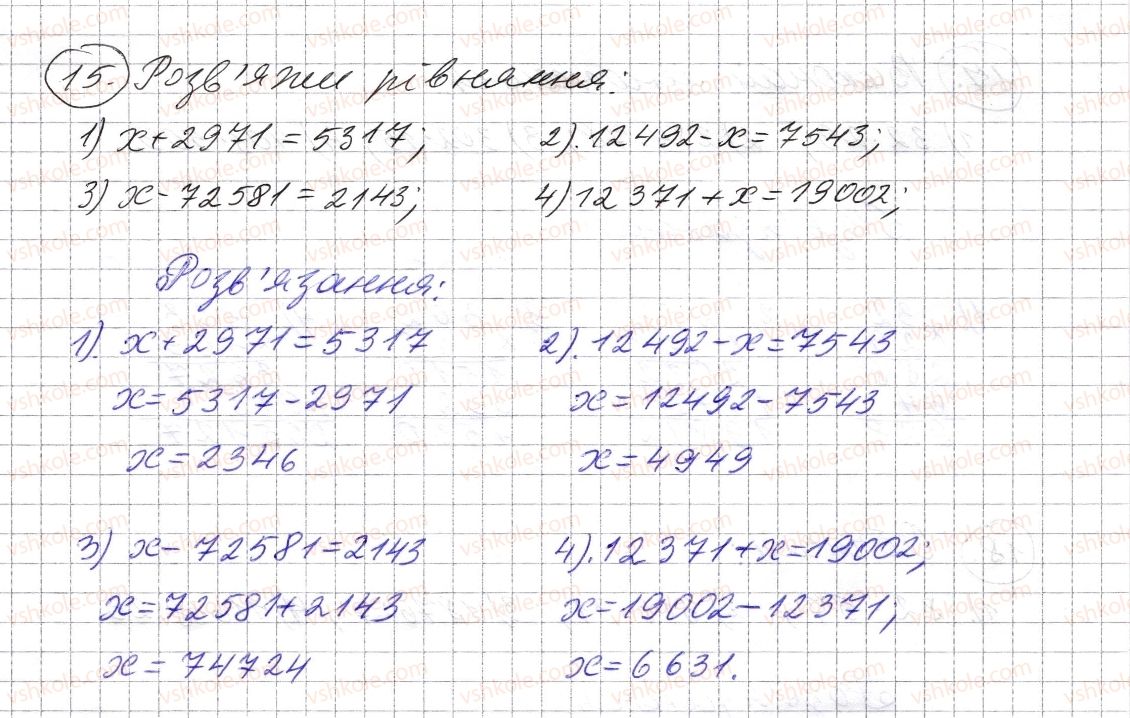 15. Розв'яжи рівняння:
1) x+2971=5317; 2). 12492-x=7543;
3) x-72581=2143; 4) 12371+x=19002;
Розв'язання:
1). x+2971=5317 2). 12492-x=7543
x=5317-2971 x=12492-7543
x=2346 x=4949
3) x-72581=2143 4). 12371+x=19002;
x=72581+2143 x=19002-12371;
x=74724 x=6631.